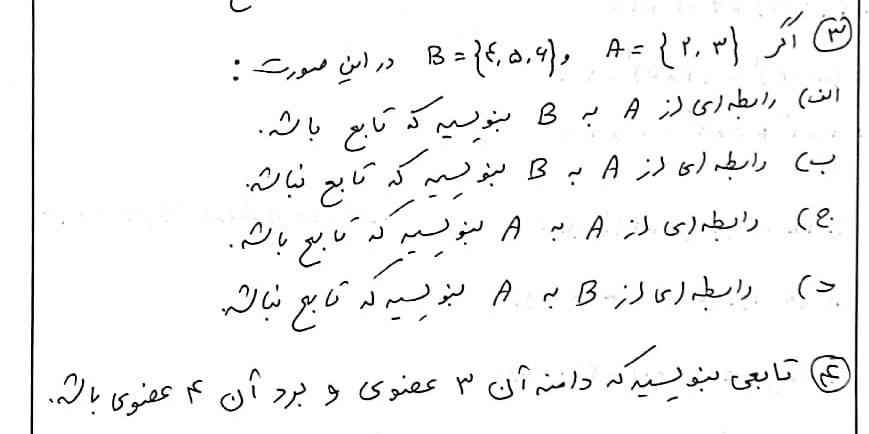 ③ اگر A = {۲, ۳} و B = {۴, ۵, ۶} در این صورت :
الف) رابطه ای از A به B بنویسید که تابع باشد.
ب) رابطه ای از A به B بنویسید که تابع نباشد.
ج) رابطه ای از A به A بنویسید که تابع باشد.
د) رابطه ای از B به A بنویسید که تابع نباشد.
④ تابعی بنویسید که دامنه آن ۳ عضوی و برد آن ۴ عضوی باشد.